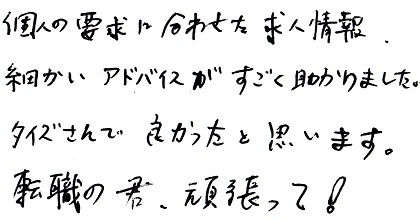 個人の要求に合わせた求人情報、
細かいアドバイスがすごく助かりました。
タイズさんで良かったと思います。
転職の君、頑張って!